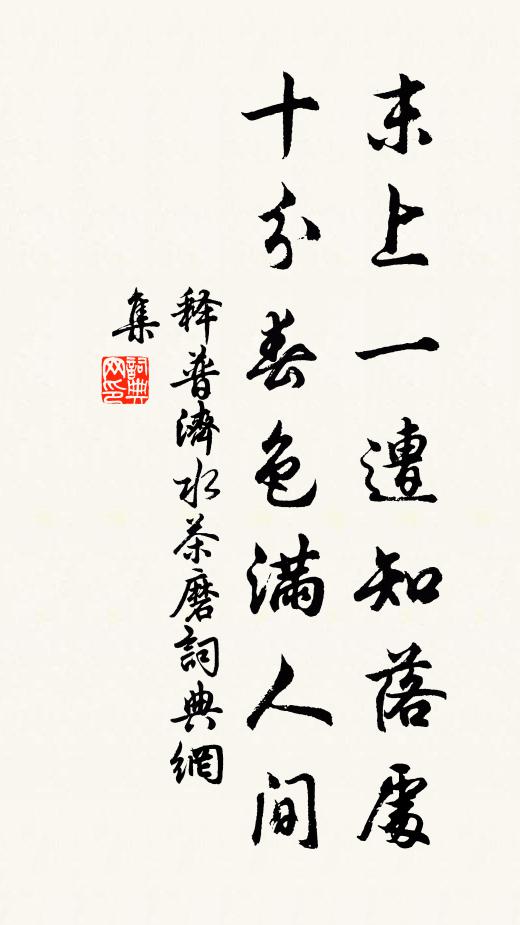 末上一遭知落處
十分春色滿人间
释普濟水茶磨詞典網
集
詞典
网印